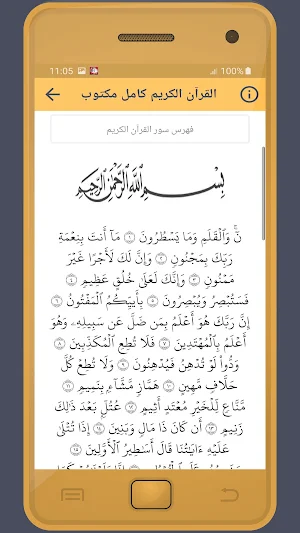 11:05
100%
القرآن الكريم كامل مكتوب
فهرس سور القرآن الكريم
بِسْمِ اللَّهِ الرَّحْمَٰنِ الرَّحِيمِ
نٓ ۚ وَٱلْقَلَمِ وَمَا يَسْطُرُونَ ﴿١﴾ مَآ أَنتَ بِنِعْمَةِ
رَبِّكَ بِمَجْنُونٍ ﴿٢﴾ وَإِنَّ لَكَ لَأَجْرًا غَيْرَ
مَمْنُونٍ ﴿٣﴾ وَإِنَّكَ لَعَلَىٰ خُلُقٍ عَظِيمٍ ﴿٤﴾
فَسَتُبْصِرُ وَيُبْصِرُونَ ﴿٥﴾ بِأَييِّكُمُ ٱلْمَفْتُونُ ﴿٦﴾
إِنَّ رَبَّكَ هُوَ أَعْلَمُ بِمَن ضَلَّ عَن سَبِيلِهِۦ وَهُوَ
أَعْلَمُ بِٱلْمُهْتَدِينَ ﴿٧﴾ فَلَا تُطِعِ ٱلْمُكَذِّبِينَ ﴿٨﴾
وَدُّوا۟ لَوْ تُدْهِنُ فَيُدْهِنُونَ ﴿٩﴾ وَلَا تُطِعْ كُلَّ
حَلَّافٍ مَّهِينٍ ﴿١٠﴾ هَمَّازٍ مَّشَّآءٍۭ بِنَمِيمٍ ﴿١١﴾
مَّنَّاعٍ لِّلْخَيْرِ مُعْتَدٍ أَثِيمٍ ﴿١٢﴾ عُتُلٍّۭ بَعْدَ ذَٰلِكَ
زَنِيمٍ ﴿١٣﴾ أَن كَانَ ذَا مَالٍ وَبَنِينَ ﴿١٤﴾ إِذَا تُتْلَىٰ
عَلَيْهِ ءَايَٰتُنَا قَالَ أَسَٰطِيرُ ٱلْأَوَّلِينَ ﴿١٥﴾